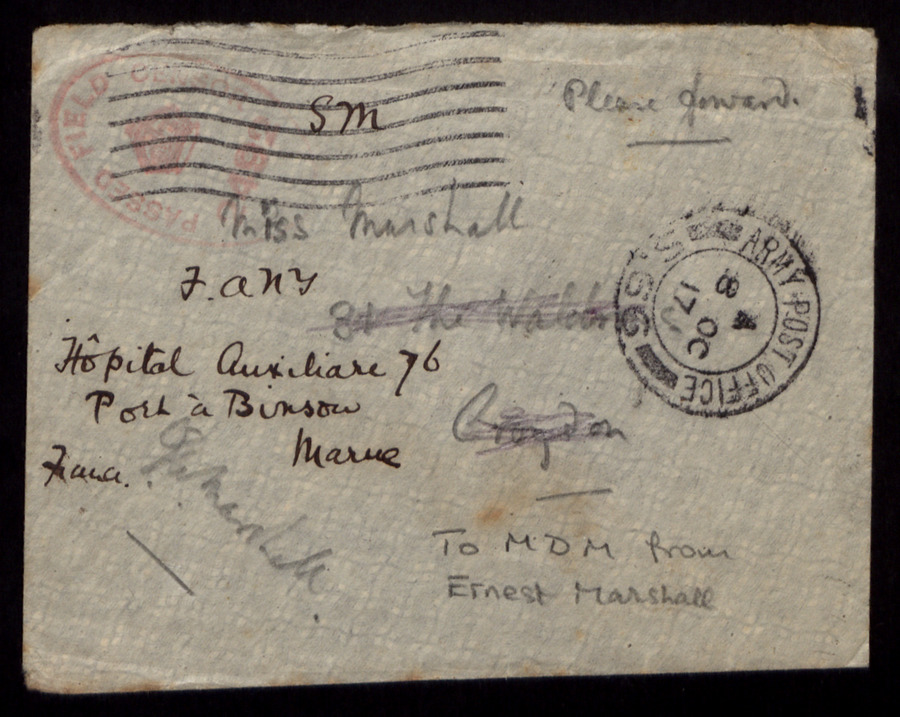 PASSED FIELD CENSOR
SM
Please forward.
Miss Marshall
F.ANY
31 The
Hôpital Auxiliare 76
Port à Binson
Marne
France.
Croydon
ARMY POST OFFICE
S.56
A
8 OC
17
Marshall
To MDM from
Ernest Marshall